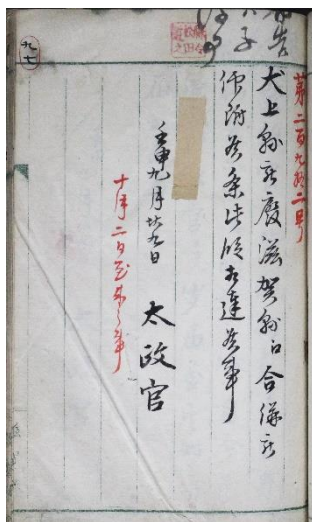 九七
第二百九拾二号
犬上縣被廃滋賀縣合併被
仰付候条此段相達候事
壬申九月廿九日
太政官
十月二日到来之事